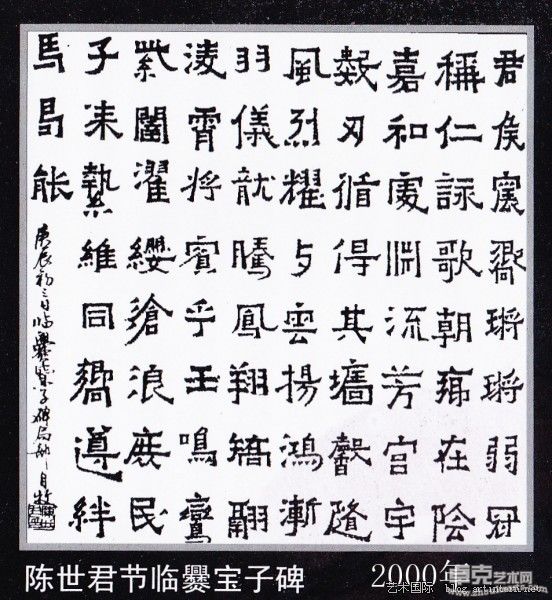 君侯震響鏘鏘弱冠
稱仁詠歌朝鄉在陰
嘉和處渕流芳宮宇
數刃循得其墻馨隨
風烈耀与雲揚鴻漸
羽儀龍騰鳳翔矯翮
淩霄將賓乎王鳴鸞
紫闥濯纓滄浪庶民
子来縶維同嚮遵絆
馬曷能
庚辰初三日临爨宝子碑局部
陈世君节临爨宝子碑 2000年
艺术国际 blog.artintern.net
卓克艺术网